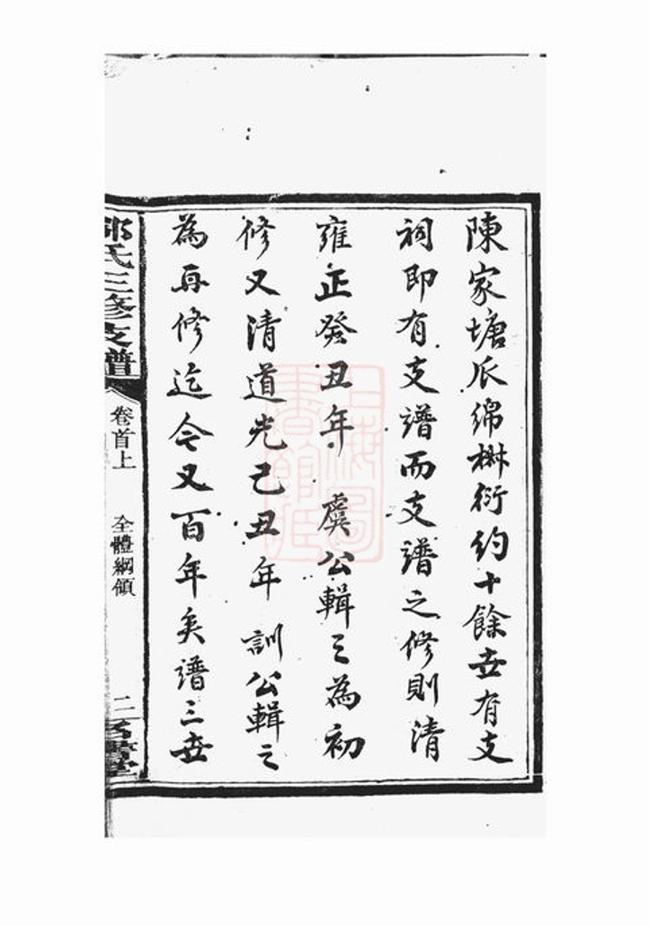 陳家塘瓜綿椒衍約十餘世有支
祠即有支譜而支譜之修則清
雍正癸丑年 虞公輯之為初
修又清道光己丑年 訓公輯之
為再修迄今又百年矣譜三世
氏三修支譜
卷首上
全體綱領
二
堂
上海圖書館藏